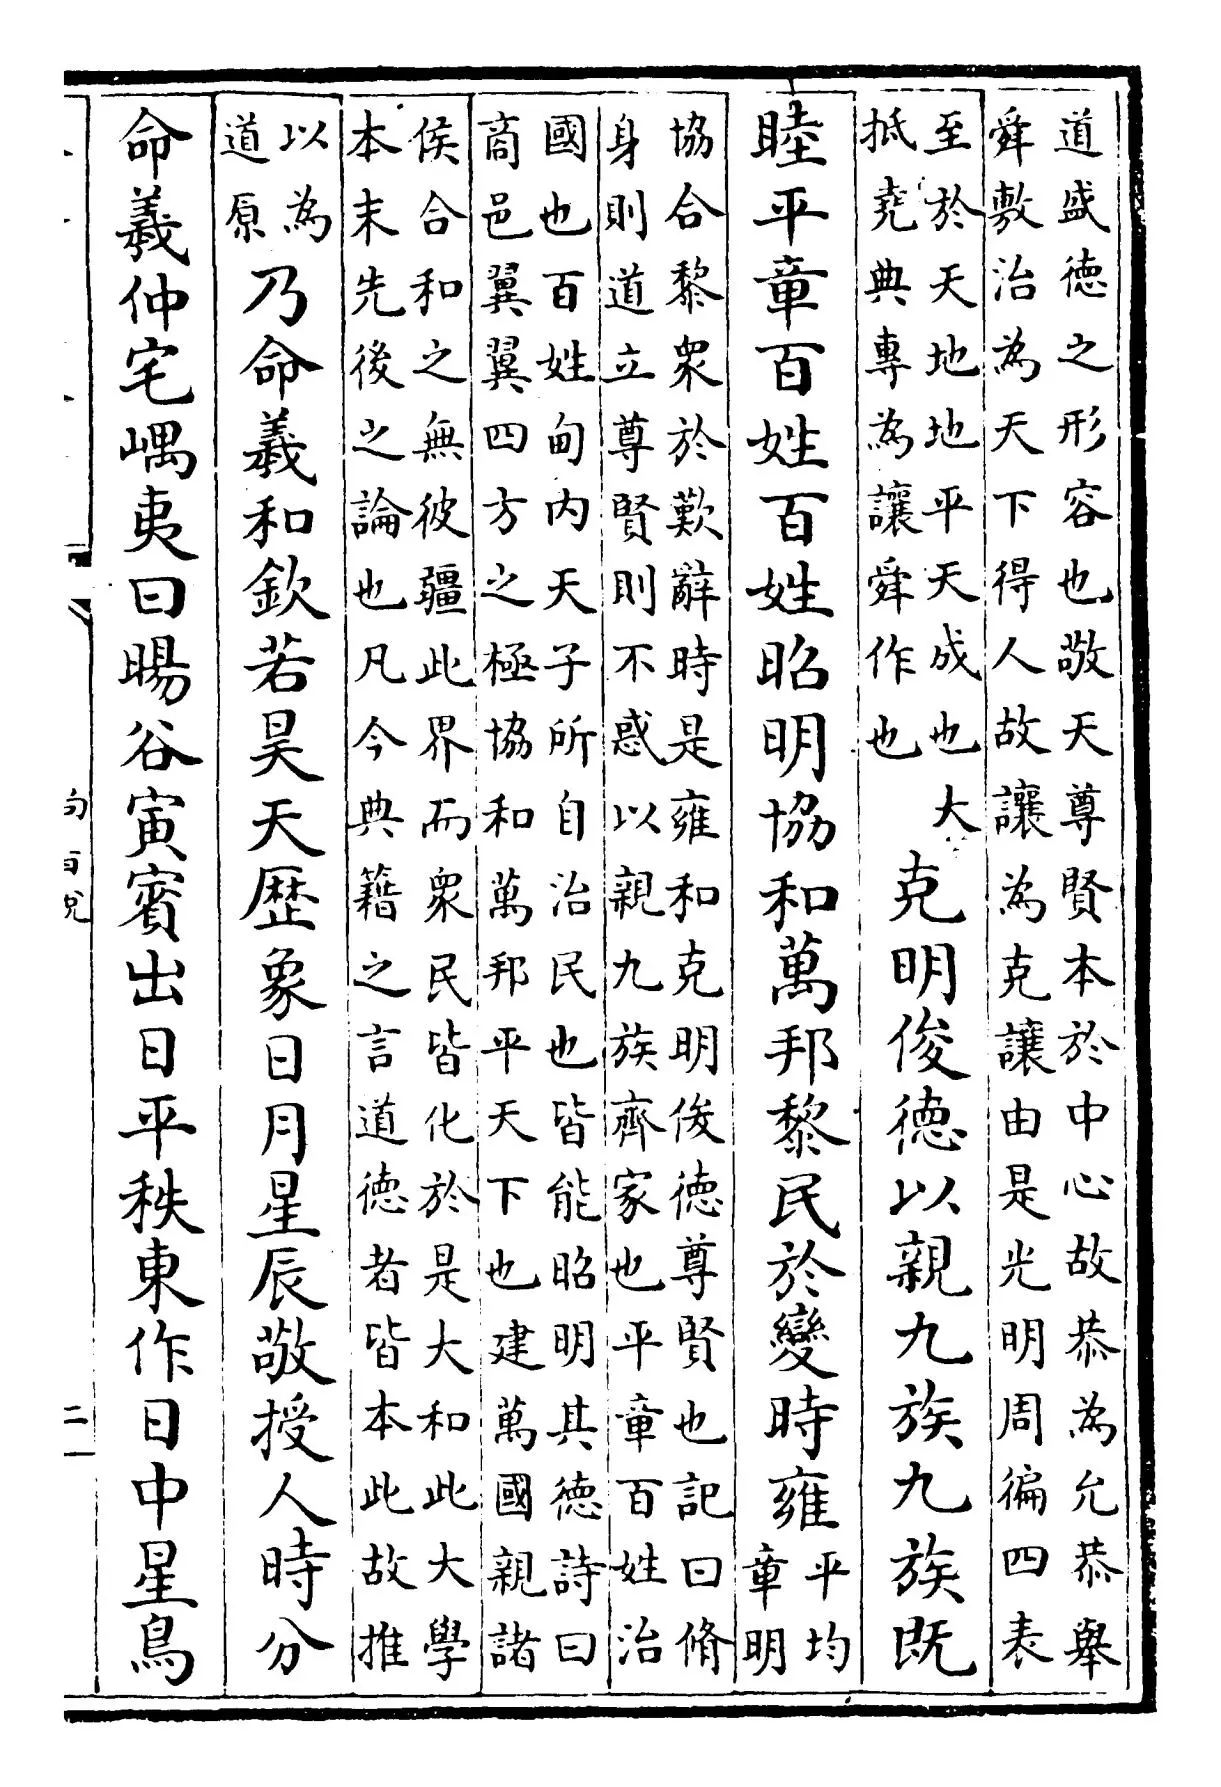 道盛德之形容也敬天尊賢本於中心故恭為允恭舉
舜敷治為天下得人故讓為克讓由是光明周徧四表
至於天地地平天成也大
抵堯典專為讓舜作也
克明俊德以親九族九族既
睦平章百姓百姓昭明協和萬邦黎民於變時雍
平均
章明
協合黎衆於歎辭時是雍和克明俊德尊賢也記曰脩
身則道立尊賢則不惑以親九族齊家也平章百姓治
國也百姓甸内天子所自治民也皆能昭明其德詩曰
商邑翼翼四方之極協和萬邦平天下也建萬國親諸
侯合和之無彼疆此界而衆民皆化於是大和此大學
本末先後之論也凡今典籍之言道德者皆本此故推
以為
道原
乃命羲和欽若昊天歴象日月星辰敬授人時分
命羲仲宅嵎夷曰暘谷寅賓出日平秩東作日中星鳥
二